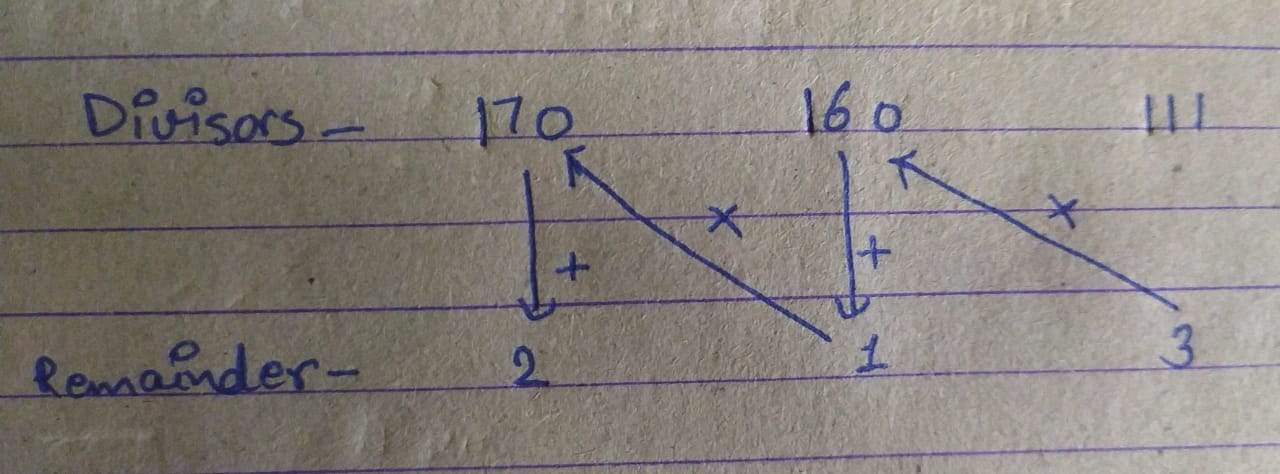 Divisors - 170 160 111
× ×
+ +
Remainder - 2 1 3